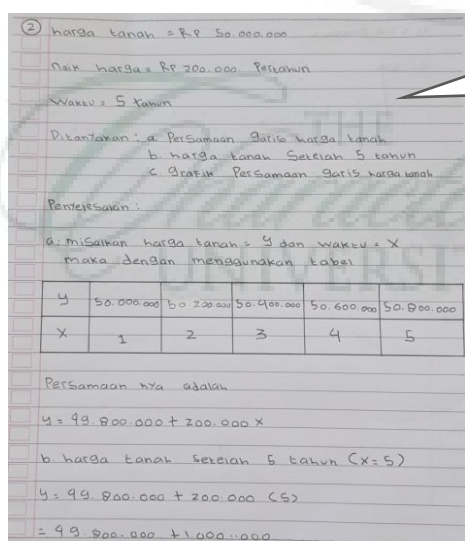 ② harga tanah = RP 50.000.000
naik harga = RP 200.000 Pertahun
Waktu = 5 tahun
Ditanyakan : a Persamaan garis harga tanah
b. harga tanah Setelah 5 tahun
c. grafik Persamaan garis harga tanah
Penyelesaian :
a. misalkan harga tanah = y dan waktu = x
maka dengan menggunakan tabel
y 50.000.000 50.200.000 50.400.000 50.600.000 50.800.000
x 1 2 3 4 5
Persamaan nya adalah
y = 49.800.000 + 200.000 x
b. harga tanah Setelah 5 tahun (x = 5)
y = 49.800.000 + 200.000 (5)
= 49.800.000 + 1.000.000
THE
UNIVERSITY